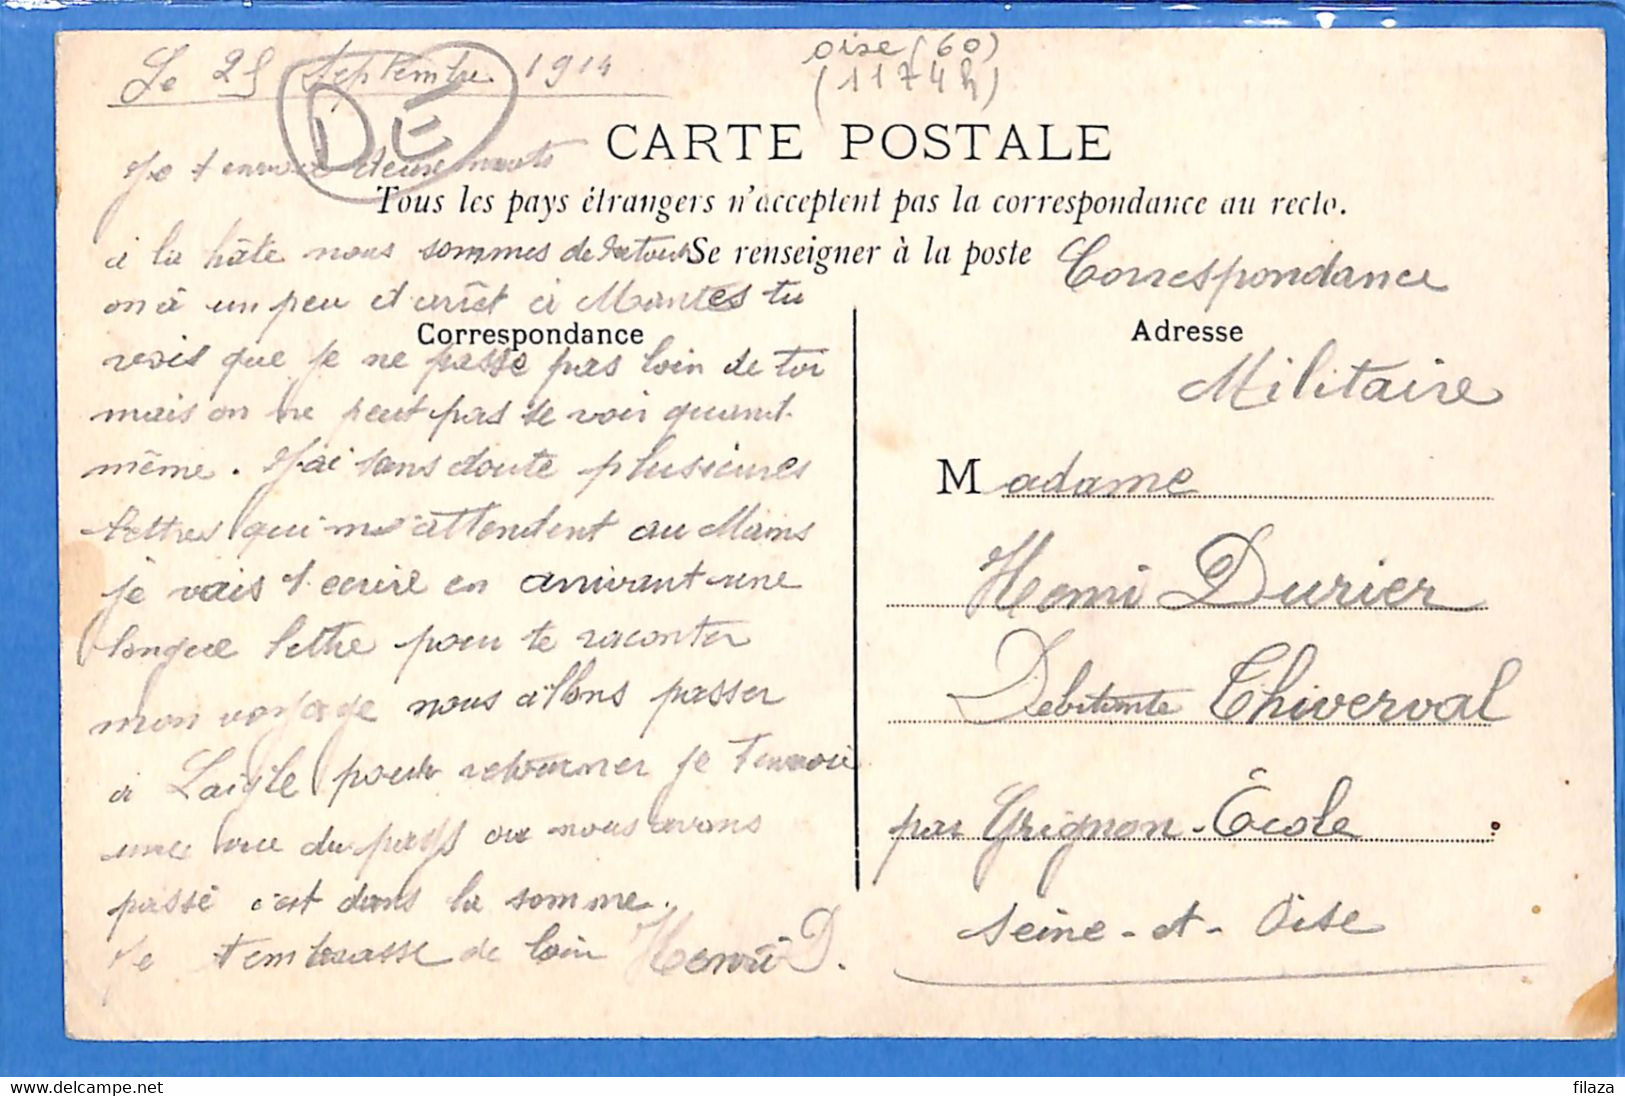 Le 25 Septembre 1914
DE
oise (60)
(1174h)
CARTE POSTALE
Tous les pays étrangers n'acceptent pas la correspondance au recto.
Se renseigner à la poste
Correspondance
Je t envoie deux mots
à la hâte nous sommes de retour
on à un peu d arrêt à Mantes tu
vois que je ne passe pas loin de toi
mais on ne peut pas se voir quant
même. J'ai sans doute plusieures
lettres qui m'attendent au Mans
je vais t'ecrire en arrivant une
longue lettre pour te raconter
mon voyage nous allons passer
à Laigle pour retourner je t'envoie
une vue du pays ou nous avons
passé c'est dans la somme.
Je t'embrasse de loin Henri D.
Correspondance
Adresse
Militaire
Madame
Henri Durier
Debitante Thiverval
par Grignon-École
Seine-et-Oise
filaza